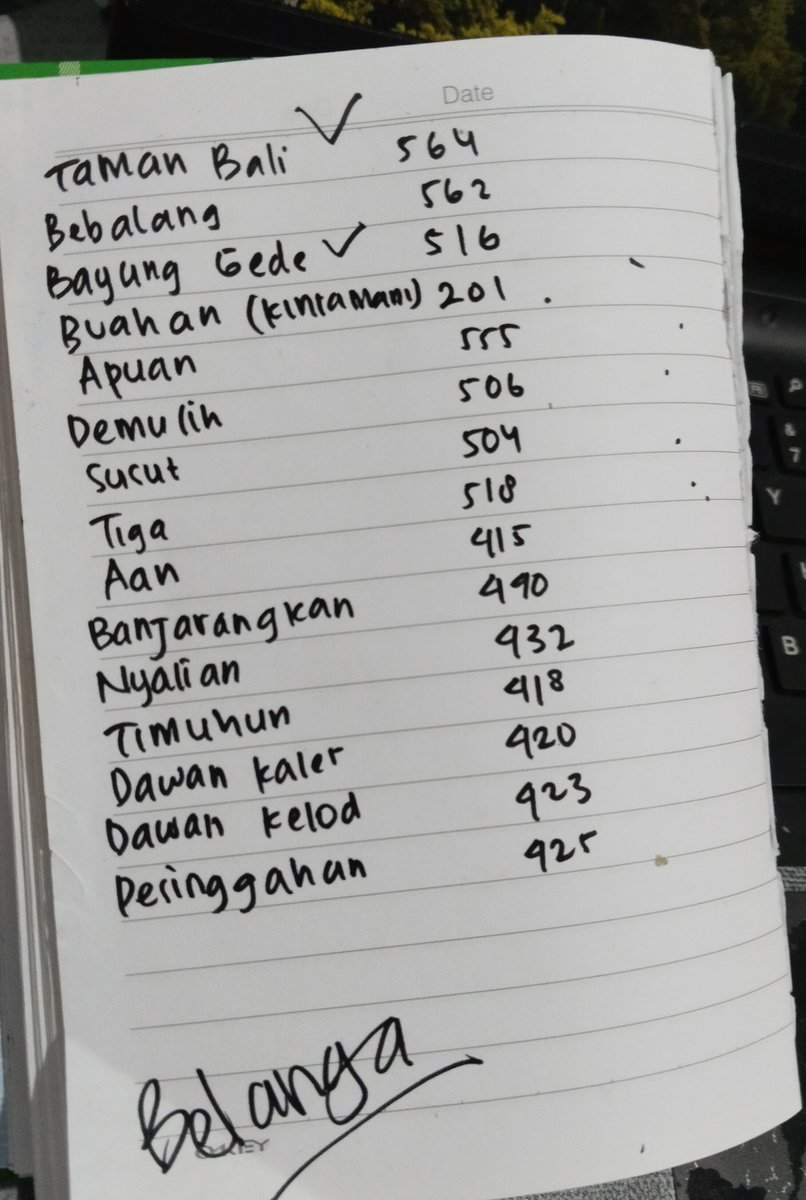 Date
Taman Bali ✓ 564
Bebalang 562
Bayung Gede ✓ 516
Buahan (Kintamani) 201
Apuan 555
Demulih 506
Susut 504
Tiga 518
Aan 415
Banjarangkan 490
Nyalian 432
Timuhun 418
Dawan Kaler 420
Dawan Kelod 423
Pesinggahan 425
Belanga